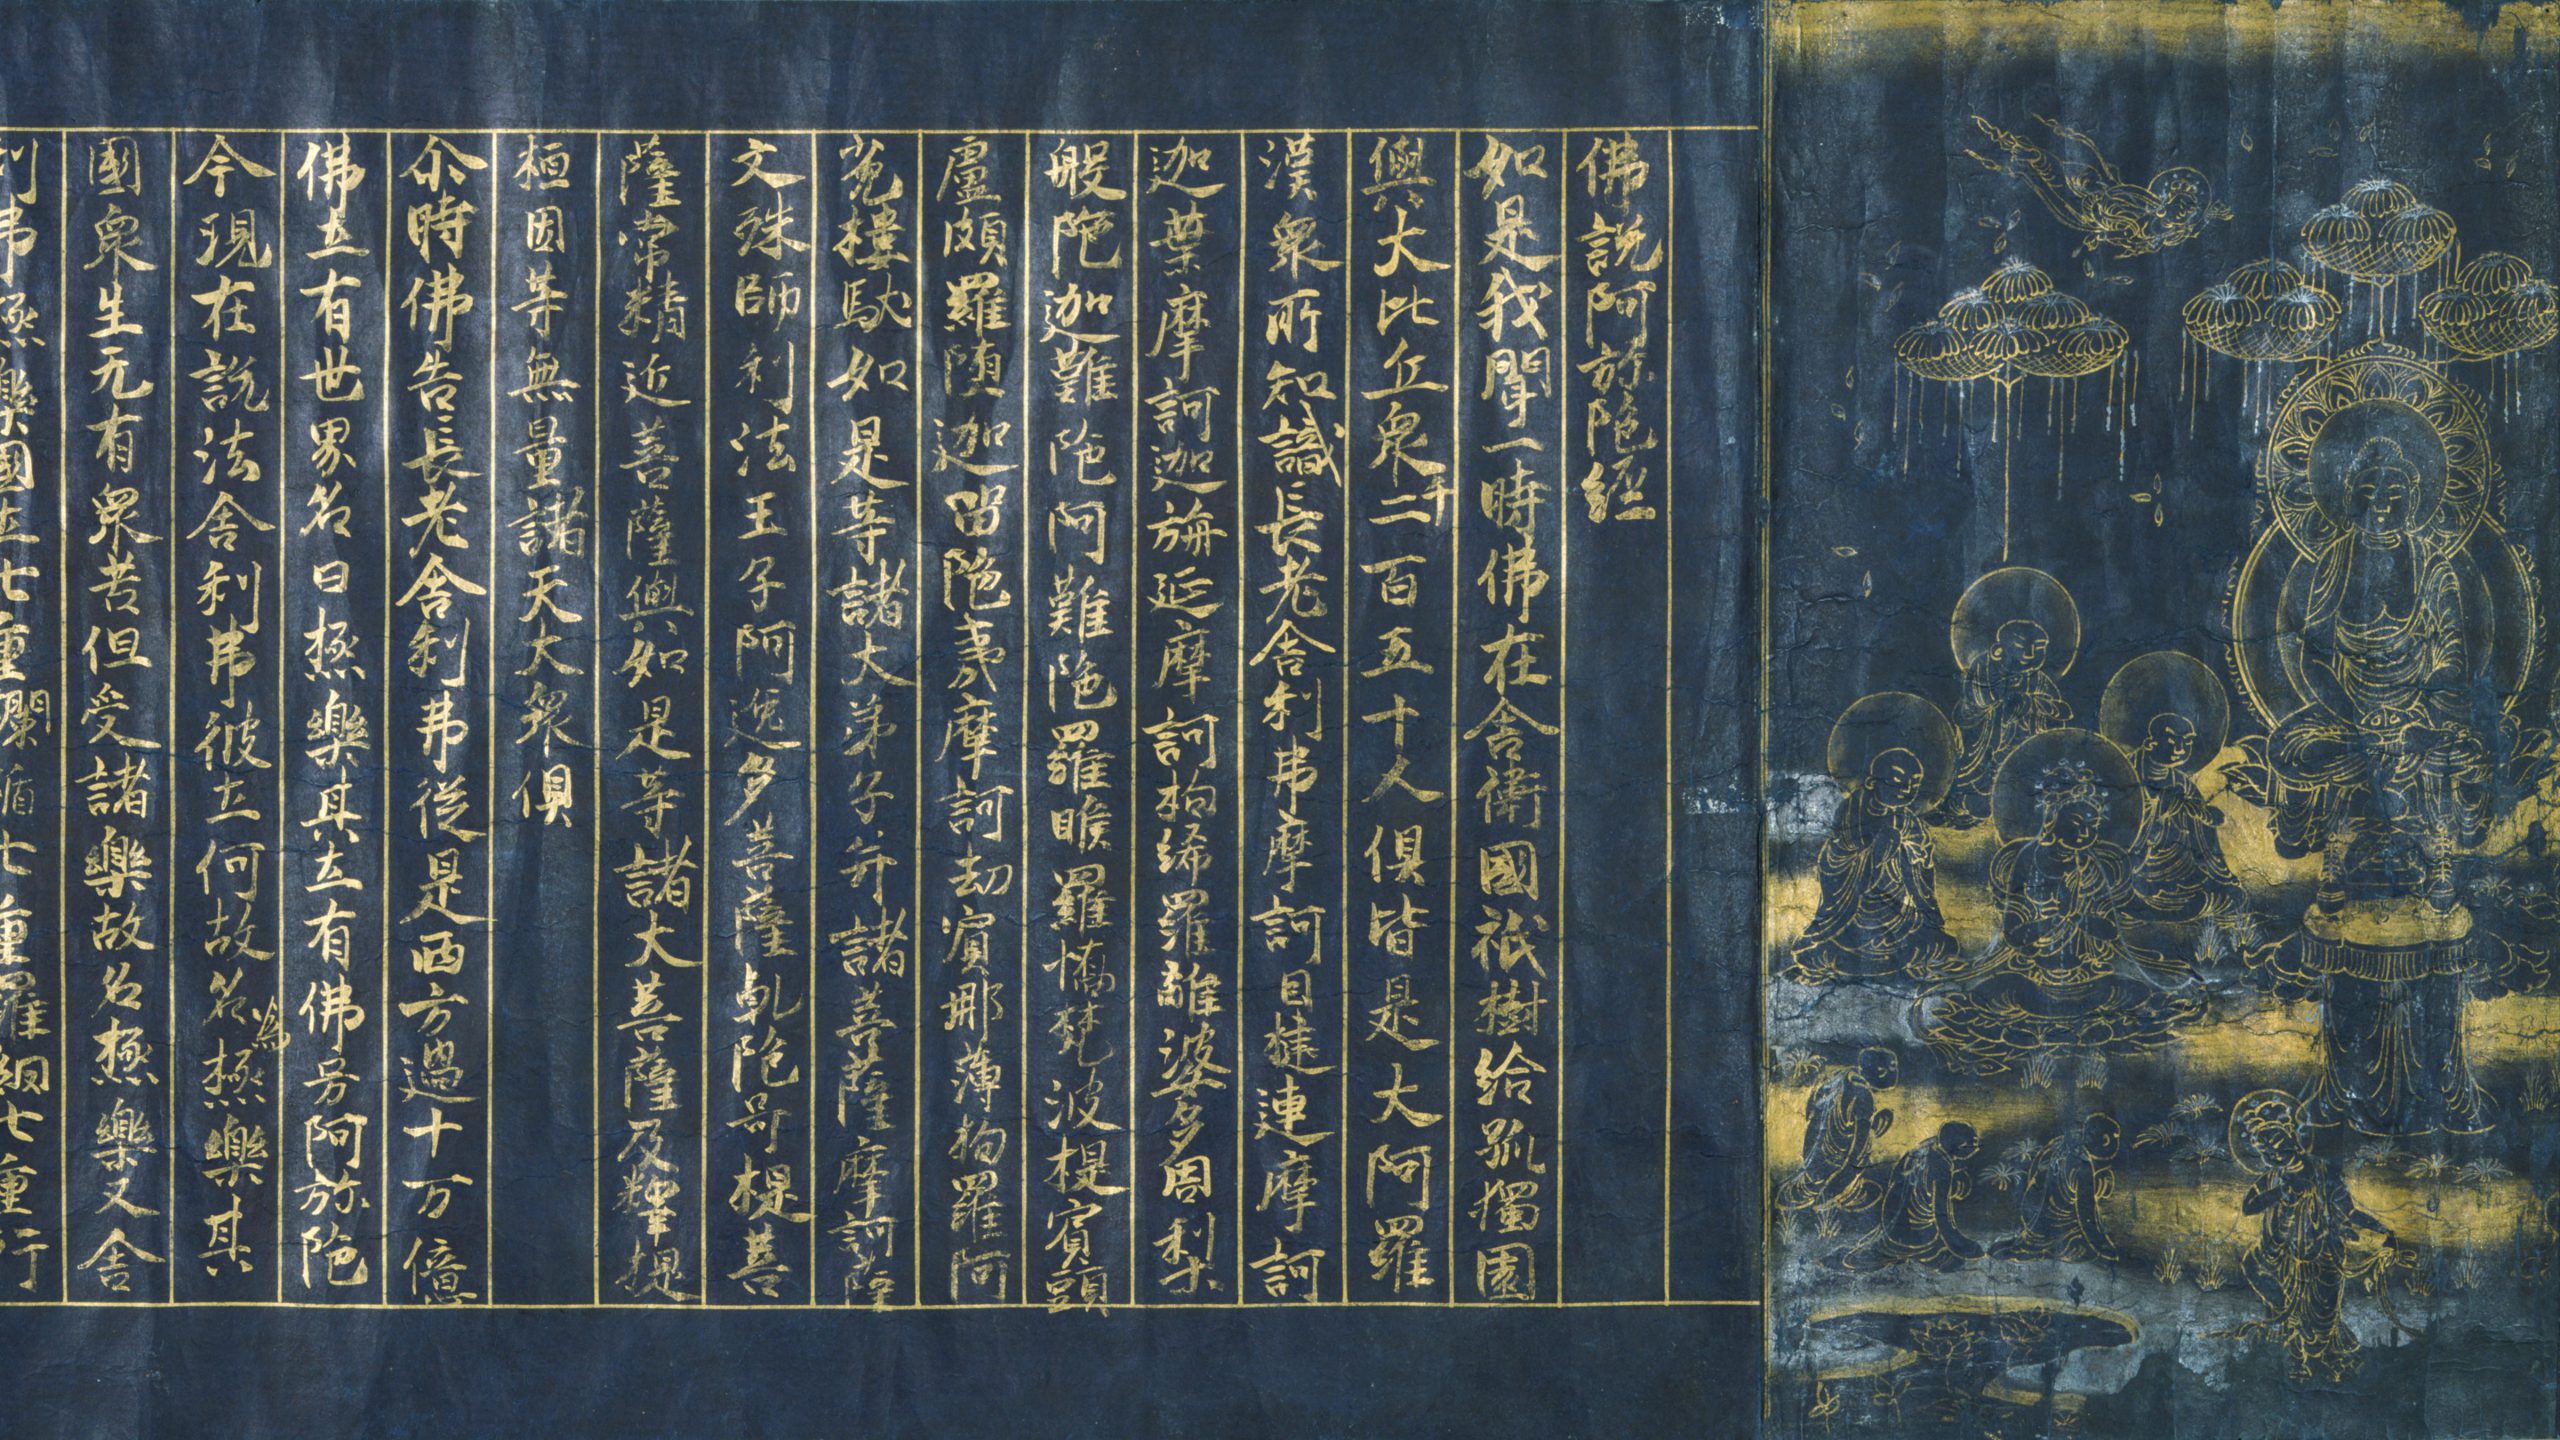 佛說阿弥陁經
如是我聞一時佛在舍衛國祇樹給孤獨園
與大比丘衆千二百五十人俱皆是大阿羅
漢衆所知識長老舍利弗摩訶目揵連摩訶
迦葉摩訶迦旃延摩訶拘絺羅離婆多周利
般陁迦難陁阿難陁羅睺羅憍梵波提賓頭
盧頗羅墮迦留陁夷摩訶劫賓那薄拘羅阿
㝹樓馱如是等諸大弟子并諸菩薩摩訶薩
文殊師利法王子阿逸多菩薩乹陁呵提菩
薩常精進菩薩與如是等諸大菩薩及釋提
桓因等無量諸天大衆俱
尒時佛告長老舍利弗從是西方過十万億
佛土有世界名曰極樂其土有佛号阿弥陁
今現在說法舍利弗彼土何故名為極樂其
國衆生无有衆苦但受諸樂故名極樂又舍
利弗極樂國土七重欄楯七重羅網七重行